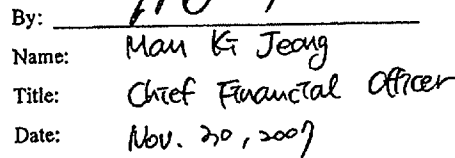 By:
Name: Man Ki Jeong
Title: Chief Financial Officer
Date: Nov. 30, 2007